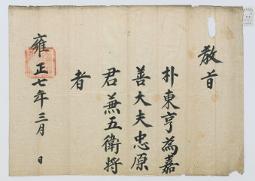 教旨
朴東亨為嘉
善大夫忠原
君兼五衛将
者
雍正七年三月 日